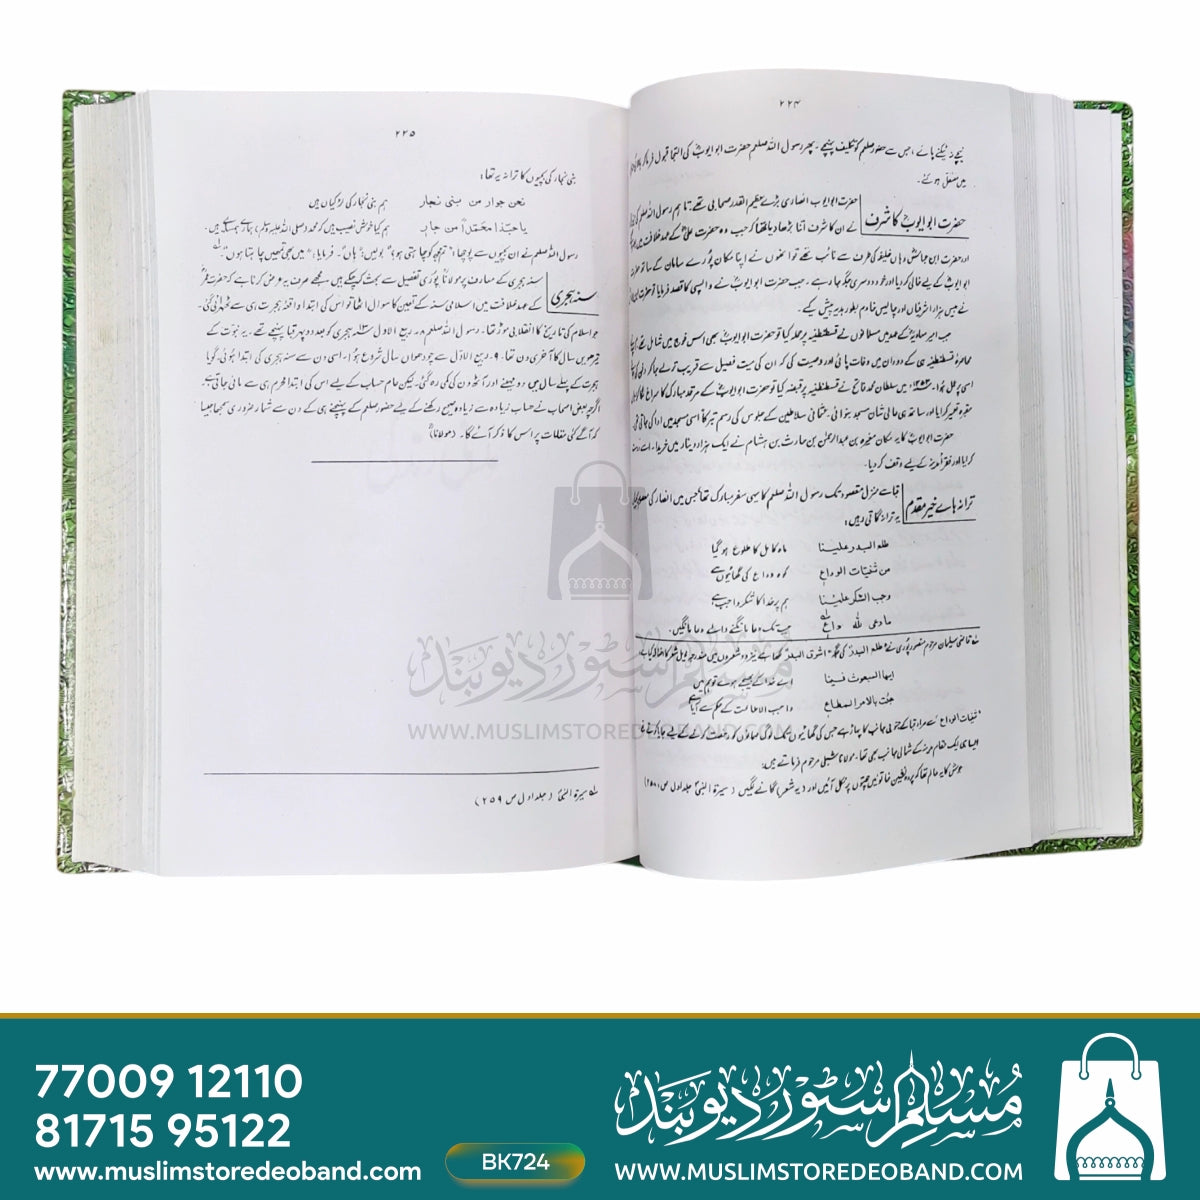 ۲۲۴
نیچے نہ ٹپکنے پائے، جس سے حضور صلعم کو تکلیف پہنچے۔ پھر رسول اللہ صلعم حضرت ابو ایوبؓ کی التجا قبول فرما کر بالا
میں منتقل ہو گئے۔
حضرت ابو ایوبؓ کا شرف
حضرت ابو ایوب انصاری بڑے عظیم القدر صحابی تھے، تاہم رسول اللہ صلعم
کے ان کا شرف اتنا بڑھا دیا تھا کہ جب وہ حضرت علیؓ کے عہد خلافت میں
اور حضرت ابن عباسؓ وہاں خلیفہ کی طرف سے نائب تھے تو انھوں نے اپنا مکان پورے سامان کے ساتھ حضرت
ابو ایوبؓ کے لیے خالی کر دیا اور خود دوسری جگہ جا رہے۔ جب حضرت ابو ایوبؓ نے واپسی کا قصد فرمایا تو حضرت ابن
نے بیس ہزار اشرفیاں اور چالیس خادم بطور ہدیہ پیش کیے۔
جب امیر معاویہؓ کے عہد میں مسلمانوں نے قسطنطنیہ پر حملہ کیا تو حضرت ابو ایوبؓ بھی اس فوج میں شامل تھے
محاصرۂ قسطنطنیہ کے دوران میں وفات پائی اور وصیت کی کہ ان کی میت فصیل سے قریب تر لے جا کر دفن کی
اسی پر عمل ہوا۔ ۱۴۵۳ء میں سلطان محمد فاتح نے قسطنطنیہ پر قبضہ کیا تو حضرت ابو ایوبؓ کے مرقد مبارک کا سراغ لگا کر
مقبرہ تعمیر کرایا اور ساتھ ہی عالی شان مسجد بنوائی۔ عثمانی سلاطین کے جلوس کی رسم تبرکاً اسی مسجد میں ادا کی جاتی تھی
حضرت ابو ایوبؓ کا یہ مکان مغیرہ بن عبدالرحمٰن بن حارث بن ہشام نے ایک ہزار دینار میں خریدا۔ اسے
کرایا اور فقراء مدینہ کے لیے وقف کر دیا۔
ترانہ ہائے خیر مقدم
قبا سے منزل مقصود تک رسول اللہ صلعم کا یہی سفر مبارک تھا جس میں انصار کی
یہ ترانہ گاتی رہیں:
طلع البدر علینا ماہ کامل کا طلوع ہو گیا
من ثنیّات الوداع کوہ وداع کی گھاٹیوں سے
وجب الشکر علینا ہم پر خدا کا شکر واجب ہے
ما دعی للہ داع جب تک دعا مانگنے والے دعا مانگیں۔
لہ قاضی سلیمان مرحوم منصور پوری نے "طلع البدر" کی جگہ "اشرق البدر" لکھا ہے نیز دو شعروں میں مندرجہ ذیل شعر کا اضافہ کیا ہے،
ایھا المبعوث فینا اے خدا کے بھیجے ہوئے تو ہم میں
جئت بالامر المطاع واجب الاطاعت حکم لے آیا ہے
"ثنیات الوداع" سے مراد قبا کے جنوبی جانب کا پہاڑ ہے جس کی گھاٹیوں تک لوگ مہمانوں کو رخصت کرنے کے لیے جایا کرتے تھے
ایسا ہی ایک مقام مدینہ کے شمالی جانب بھی تھا۔ مولانا شبلی مرحوم فرماتے ہیں:
جوش کا یہ عالم تھا کہ پردہ نشین خاتونیں چھتوں پر نکل آئیں اور (یہ شعر) گانے لگیں (سیرۃ النبیؐ جلد اول ص ۲۵۸)
۲۲۵
بنی نجار کی بچیوں کا ترانہ یہ تھا:
نحن جوار من بنی نجار ہم بنی نجار کی لڑکیاں ہیں
یا حبذا محمّدٌ من جار ہم کیا خوش نصیب ہیں کہ محمد (صلی اللہ علیہ وسلم) ہمارے ہمسائے ہیں۔
رسول اللہ صلعم نے ان بچیوں سے پوچھا "تم مجھ کو چاہتی ہو؟" بولیں: ہاں۔ فرمایا: "میں بھی تمھیں چاہتا ہوں" لہ
سنہ ہجری
سنہ ہجری کے معارف پر مولاناؒ پوری تفصیل سے بحث کر چکے ہیں۔ مجھے صرف یہ عرض کرنا ہے کہ حضرت عمرؓ
کے عہد خلافت میں اسلامی سنہ کے تعین کا سوال اٹھا تو اس کی ابتدا واقعۂ ہجرت ہی سے ٹھہرائی گئی۔
جو اسلام کی تاریخ کا انقلابی موڑ تھا۔ رسول اللہ صلعم ۸۔ ربیع الاول ۱ھ ہجری کو بعد دوپہر قبا پہنچے تھے۔ یہ نبوت کے
تیرھویں سال کا آخری دن تھا۔ ۹۔ ربیع الاول سے چودھواں سال شروع ہوا۔ اسی دن سے سنہ ہجری کی ابتدا ہوئی، گویا
ہجرت کے پہلے سال میں دو مہینے اور آٹھ دن کی کمی رہ گئی۔ لیکن عام حساب کے لیے اس کی ابتدا محرم ہی سے مانی جاتی ہے۔
اگرچہ بعض اصحاب نے حساب زیادہ سے زیادہ صحیح رکھنے کے لیے حضور صلعم کے پہنچنے ہی کے دن سے شمار ضروری سمجھا جیسا
کہ آگے کئی مقامات پر اس کا ذکر آئے گا۔ (مولاناؒ)
لہ سیرۃ النبیؐ (جلد اول ص ۲۵۹)
مسلم سٹور دیوبند
WWW.MUSLIMSTOREDEOBAND.COM
77009 12110
81715 95122
www.muslimstoredeoband.com
BK724
مسلم سٹور دیوبند
WWW.MUSLIMSTOREDEOBAND.COM